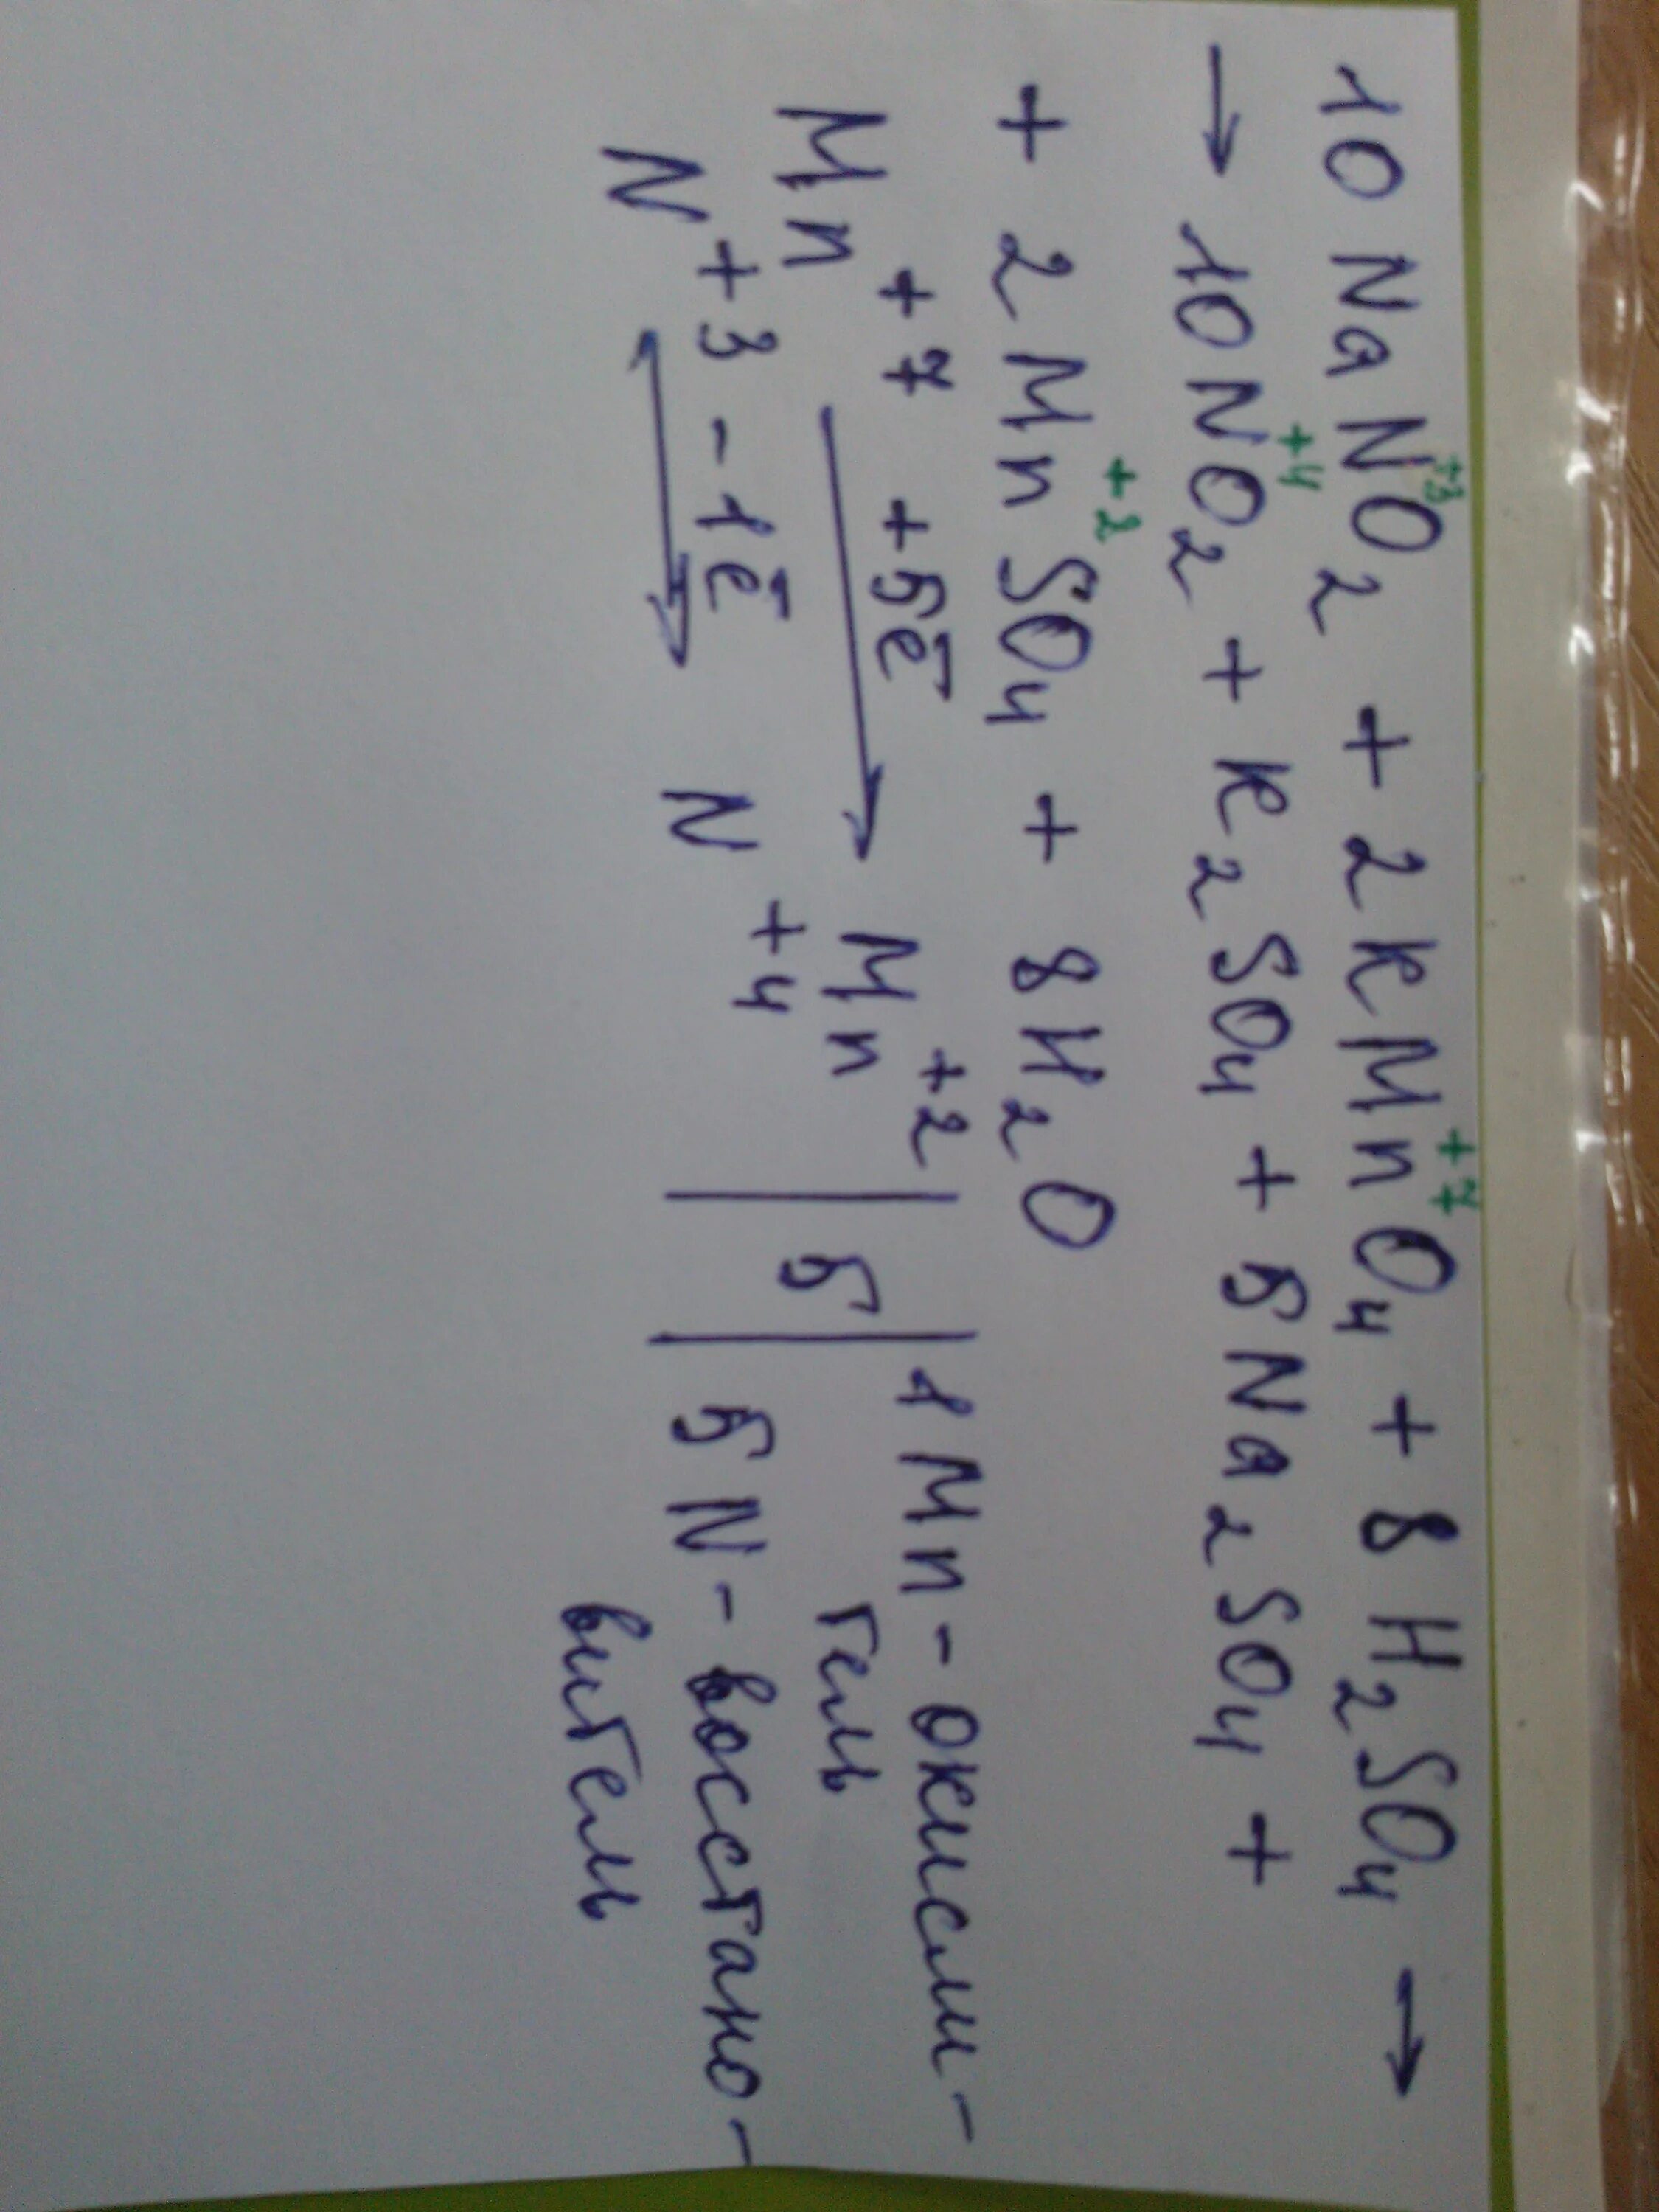 10 NaN⁺³O₂ + 2KMn⁺⁷O₄ + 8H₂SO₄ →
→ 10N⁺⁴O₂ + K₂SO₄ + 5Na₂SO₄ +
+ 2Mn⁺²SO₄ + 8H₂O
Mn⁺⁷ +5ē → Mn⁺² | 5 | 1 Mn - окисли-
тель
N⁺³ - 1ē → N⁺⁴ | | 5 N - восстано-
витель